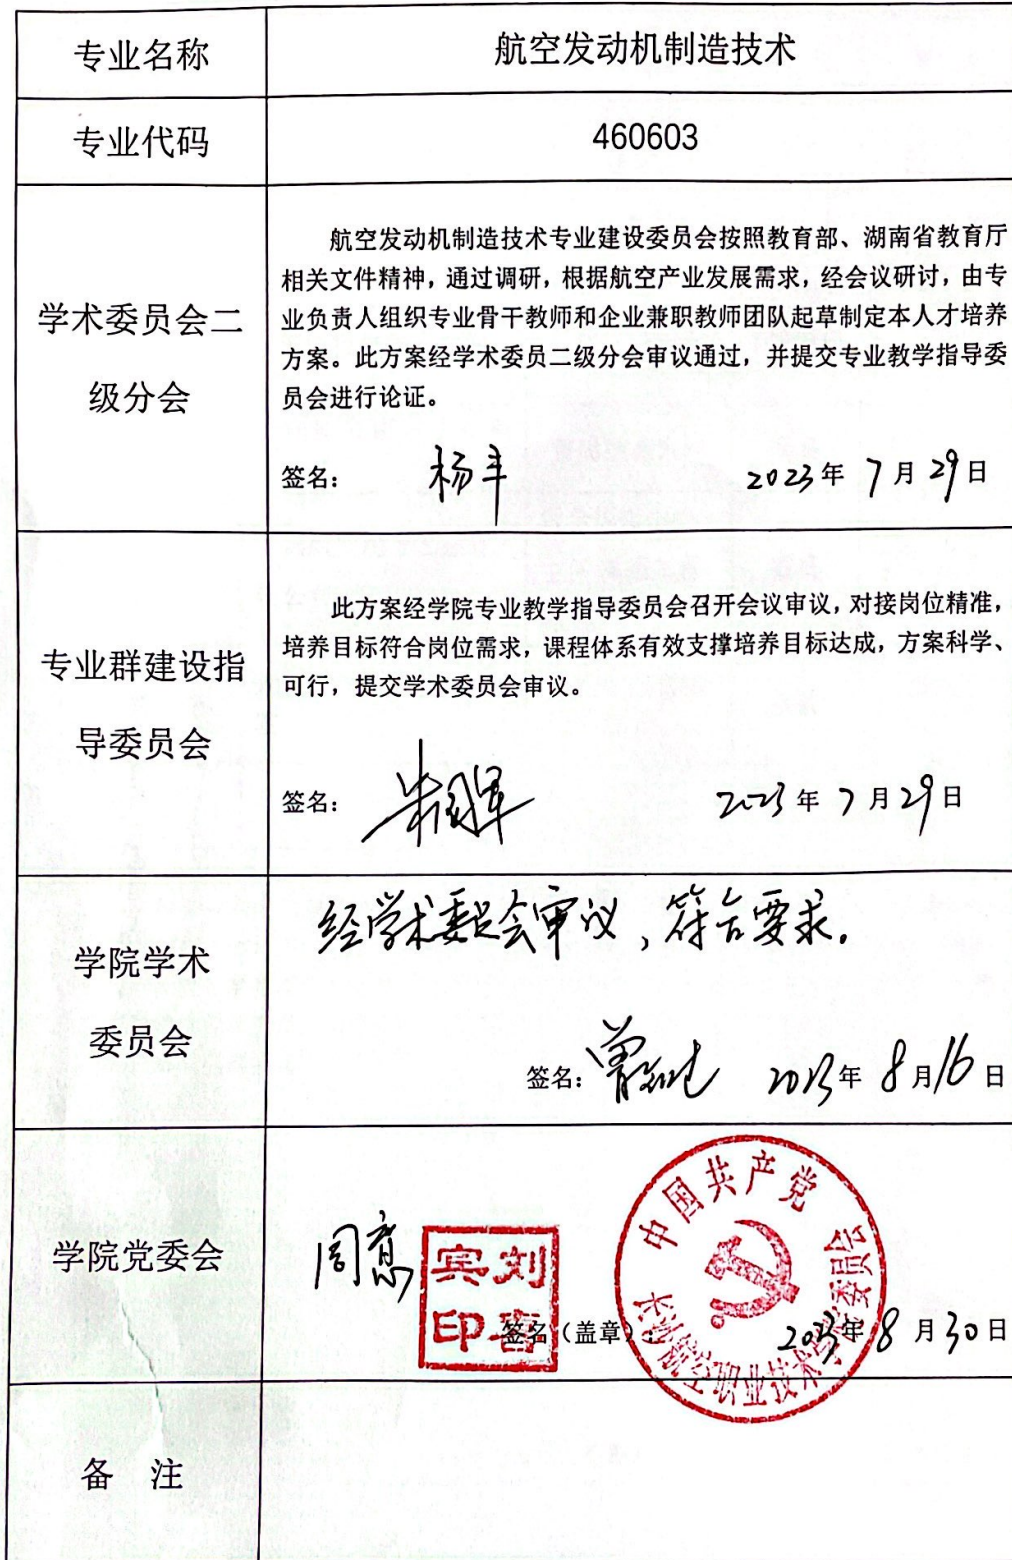 专业名称
航空发动机制造技术
专业代码
460603
学术委员会二
级分会
航空发动机制造技术专业建设委员会按照教育部、湖南省教育厅
相关文件精神，通过调研，根据航空产业发展需求，经会议研讨，由专
业负责人组织专业骨干教师和企业兼职教师团队起草制定本人才培养
方案。此方案经学术委员二级分会审议通过，并提交专业教学指导委
员会进行论证。
签名： 杨丰 2023年 7月29日
专业群建设指
导委员会
此方案经学院专业教学指导委员会召开会议审议，对接岗位精准，
培养目标符合岗位需求，课程体系有效支撑培养目标达成，方案科学、
可行，提交学术委员会审议。
签名： 朱国军 2023年 7月29日
学院学术
委员会
经学术委员会审议，符合要求。
签名： 2023年 8月16日
学院党委会
宾刘
印喜
签名（盖章）： 2023年 8月30日
中国共产党长沙航空职业技术学院委员会
备 注